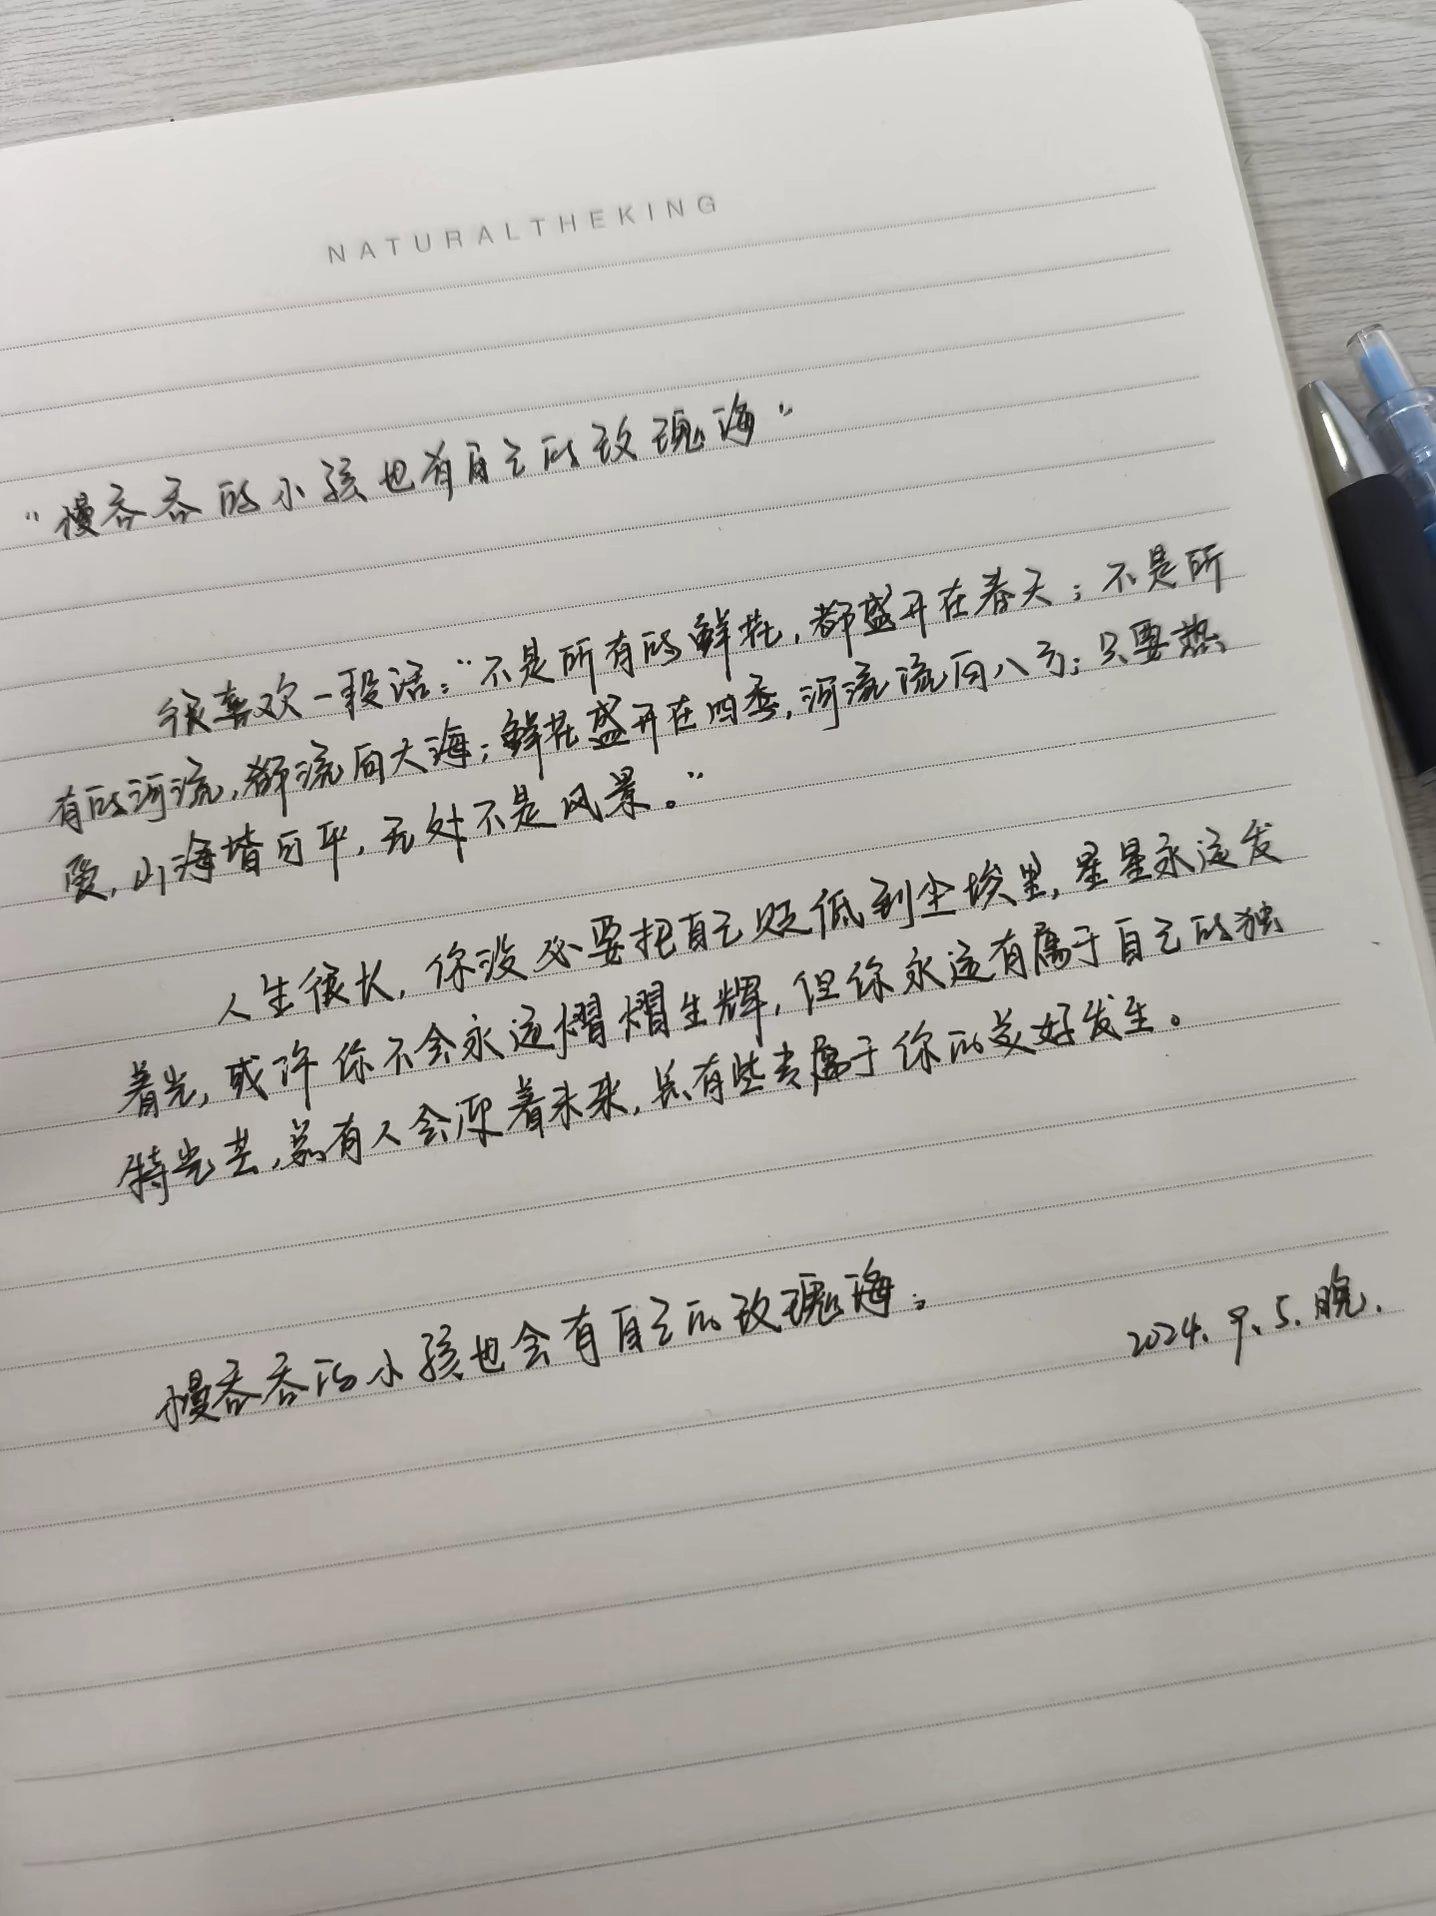 NATURALTHEKING
“慢吞吞的小孩也有自己的玫瑰海”
很喜欢一段话：“不是所有的鲜花，都盛开在春天；不是所
有的河流，都流向大海；鲜花盛开在四季，河流流向八方；只要热
爱，山海皆可平，无处不是风景。”
人生很长，你没必要把自己贬低到尘埃里，星星永远发
着光，或许你不会永远熠熠生辉，但你永远有属于自己的独
特光芒，总有人会深着未来，总有些专属于你的美好发生。
慢吞吞的小孩也会有自己的玫瑰海。
2024.9.5.晚.